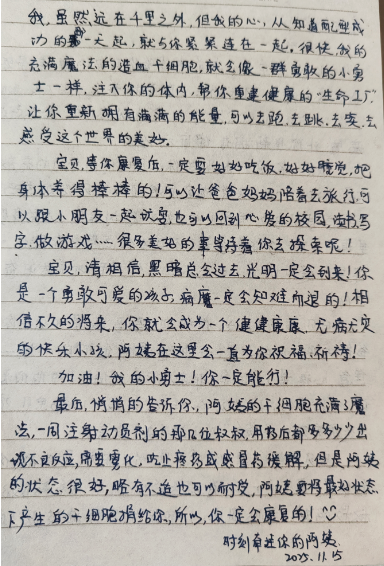 我,虽然远在千里之外,但我的心,从知道配型成
功的那一天起,就与你紧紧连在一起。很快,我的
充满魔法的造血干细胞,就会像一群勇敢的小勇
士一样,注入你的体内,帮你重建健康的“生命工厂”
让你重新拥有满满的能量,可以去跑、去跳、去笑、去
感受这个世界的美好。
宝贝,等你康复后,一定要好好吃饭,好好睡觉,把
身体养得棒棒的!可以让爸爸妈妈陪着去旅行,可
以跟小朋友一起玩耍,也可以回到心爱的校园,读书写
字,做游戏……很多美好的事等待着你去探索呢!
宝贝,请相信,黑暗总会过去,光明一定会到来!你
是一个勇敢可爱的孩子,病魔一定会知难而退的!相
信不久的将来,你就会成为一个健健康康、无病无灾
的快乐小孩,阿姨在这里会一直为你祝福、祈祷!
加油!我的小勇士!你一定能行!
最后,悄悄的告诉你,阿姨的干细胞充满了魔
法,一同注射动员剂的那几位叔叔,用药后都多多少少出
现不良反应,需要吃止疼药或感冒药缓解,但是阿姨
的状态很好,略有不适也可以耐受,阿姨要将最好状态
下产生的干细胞捐给你,所以,你一定会康复的!
时刻牵挂你的阿姨
2025.11.15